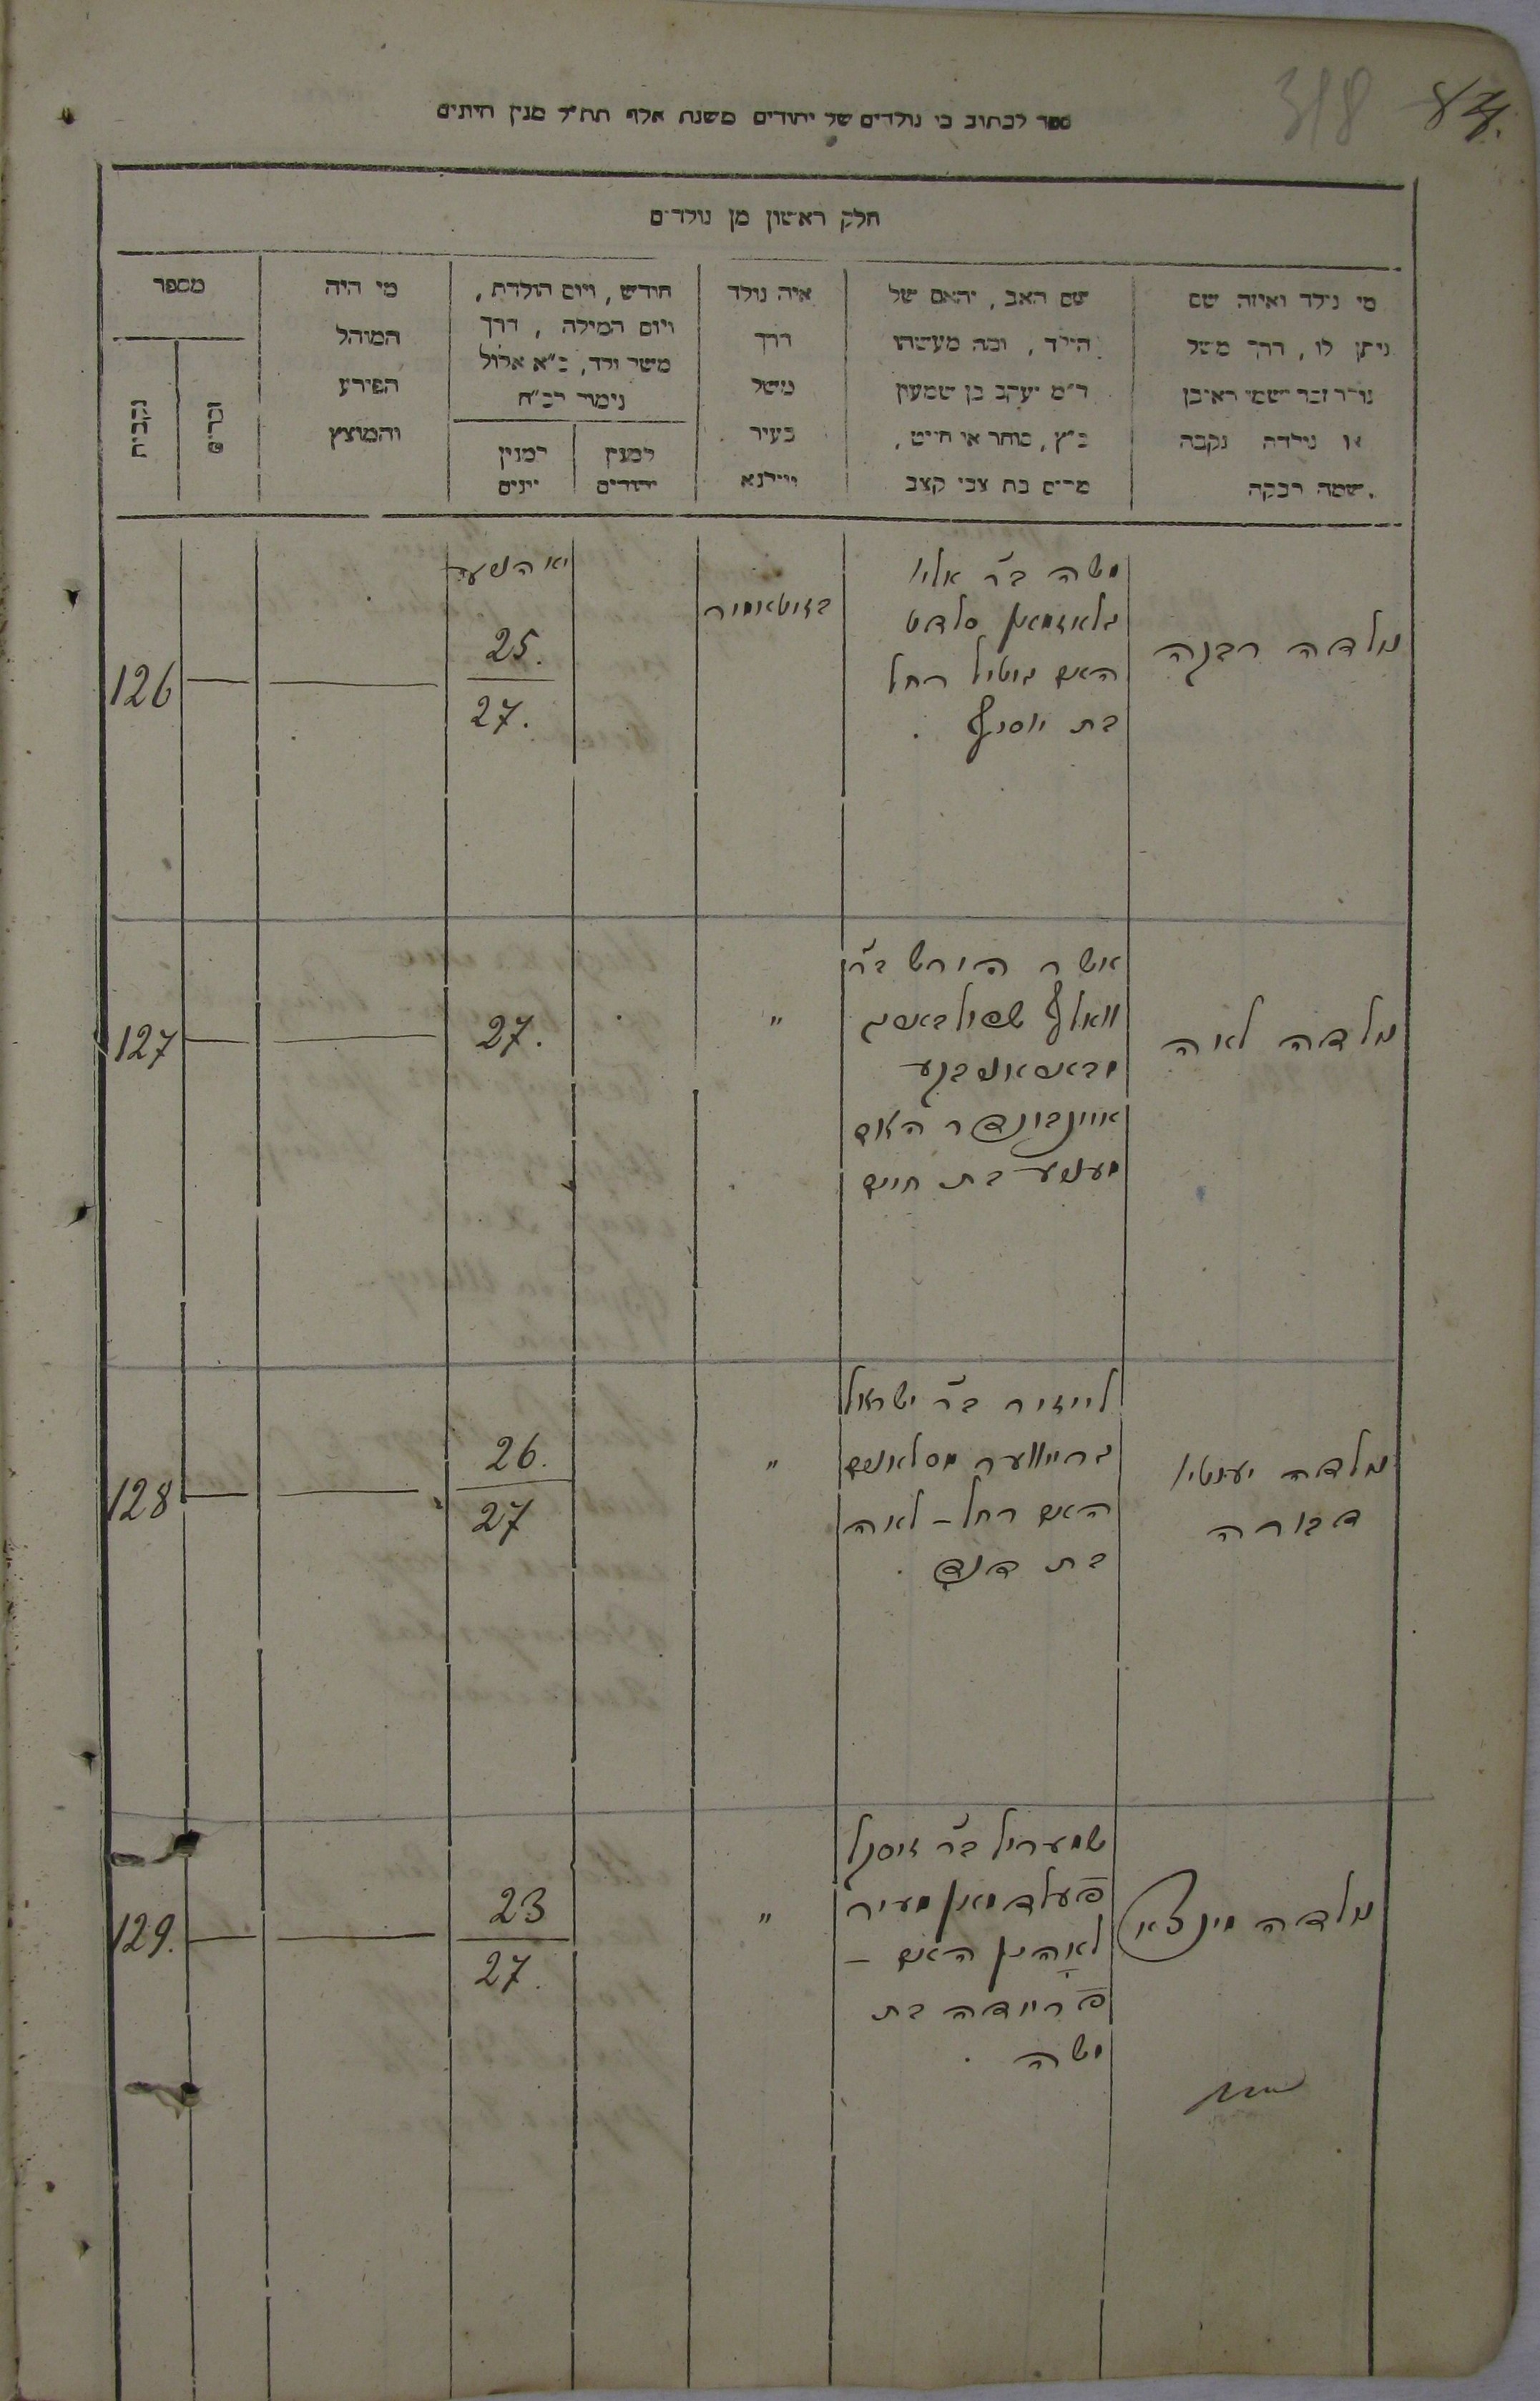 318 84.
ספר לכתוב בו נולדים של יהודים משנת אלף תת״ל מנין היונים
חלק ראשון מן נולדים
מי נולד ואיזה שם
ניתן לו, דרך משל
נולד זכר ושמו ראובן
או נולדה נקבה
שמה רבקה.
שם האב, והאם של
הילד, ומה מעשהו
ר״מ יעקב בן שמעון
כ״ץ, סוחר או חייט,
מרים בת צבי קצב
איה נולד
דרך
משל
בעיר
ווילנא
חודש, ויום הולדת,
ויום המילה, דרך
משל ולד, כ״א אלול
נימול רב״ח
למנין
יהודים
למנין
יונים
מי היה
המוהל
הפורע
והמוצץ
מספר
זכרים
נקבות
נולדה רבקה
משה ב״ר אליו
גלאזמאן סלדט
האם גיטיל רחל
בת יוסיף.
בזיטאמיר
25.
27.
126
נולדה לאה
אשר הירש ב״ר
וואלף
איינבינדר האם
בת חיים
"
27.
127
נולדה יענטיל
דבורה
לייזיר ב״ר ישראל
ברייווער
האם רחל - לאה
בת דוד.
"
26.
27
128
נולדה
שמעריל ב״ר זיסקל
פעלדמאן מעיר
האם -
פריידה בת
משה.
"
23
27.
129.